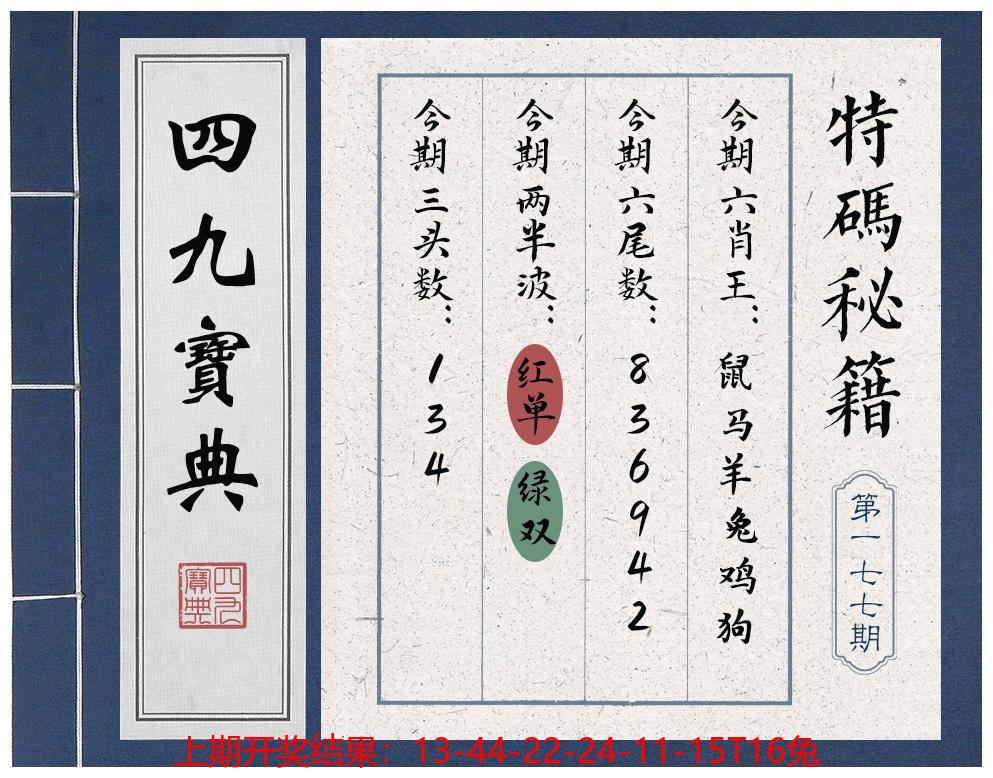 特碼秘籍
第一七七期
今期六肖王：鼠马羊兔鸡狗
今期六尾数：836942
今期两半波：红单 绿双
今期三头数：134
四九寶典
四九寶典
上期开奖结果：13-44-22-24-11-15T16兔